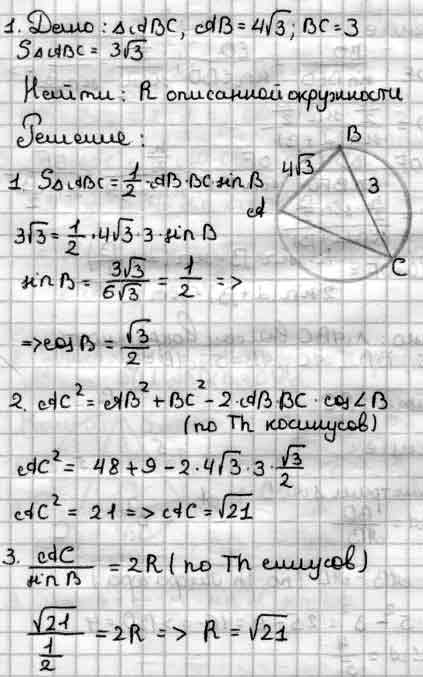 1. Дано: △ABC, AB = 4√3; BC = 3
S△ABC = 3√3
Найти: R описанной окружности
Решение:
B
4√3
3
A
C
1. S△ABC = 1/2 · AB · BC · sin B
3√3 = 1/2 · 4√3 · 3 · sin B
sin B = 3√3/6√3 = 1/2 =>
=> cos B = √3/2
2. AC² = AB² + BC² - 2 · AB · BC · cos∠B
(по Th косинусов)
AC² = 48 + 9 - 2 · 4√3 · 3 · √3/2
AC² = 21 => AC = √21
3. AC/sin B = 2R (по Th синусов)
√21/(1/2) = 2R => R = √21